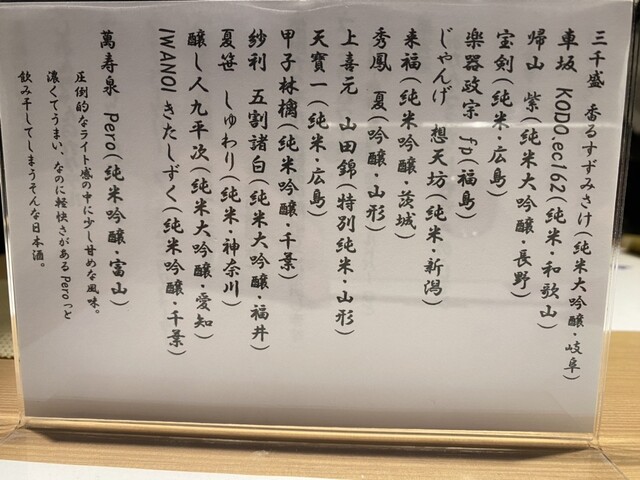 三千盛　香るすずみさけ(純米大吟醸・岐阜)
車坂　KODO.ec162(純米・和歌山)
帰山　紫(純米大吟醸・長野)
宝剣(純米・広島)
楽器政宗　fp(福島)
じゃんげ　想天坊(純米・新潟)
来福(純米吟醸・茨城)
秀鳳　夏(吟醸・山形)
上喜元　山田錦(特別純米・山形)
天寶一(純米・広島)
甲子林檎(純米吟醸・千葉)
紗利　五割諸白(純米大吟醸・福井)
夏笹　しゅわり(純米・神奈川)
醸し人九平次(純米大吟醸・愛知)
IWANOI きたしずく(純米吟醸・千葉)
萬寿泉　Pero(純米吟醸・富山)
圧倒的なライト感の中に少し甘めな風味。
濃くてうまい、なのに軽快さがあるPeroっと
飲み干してしまうそんな日本酒。